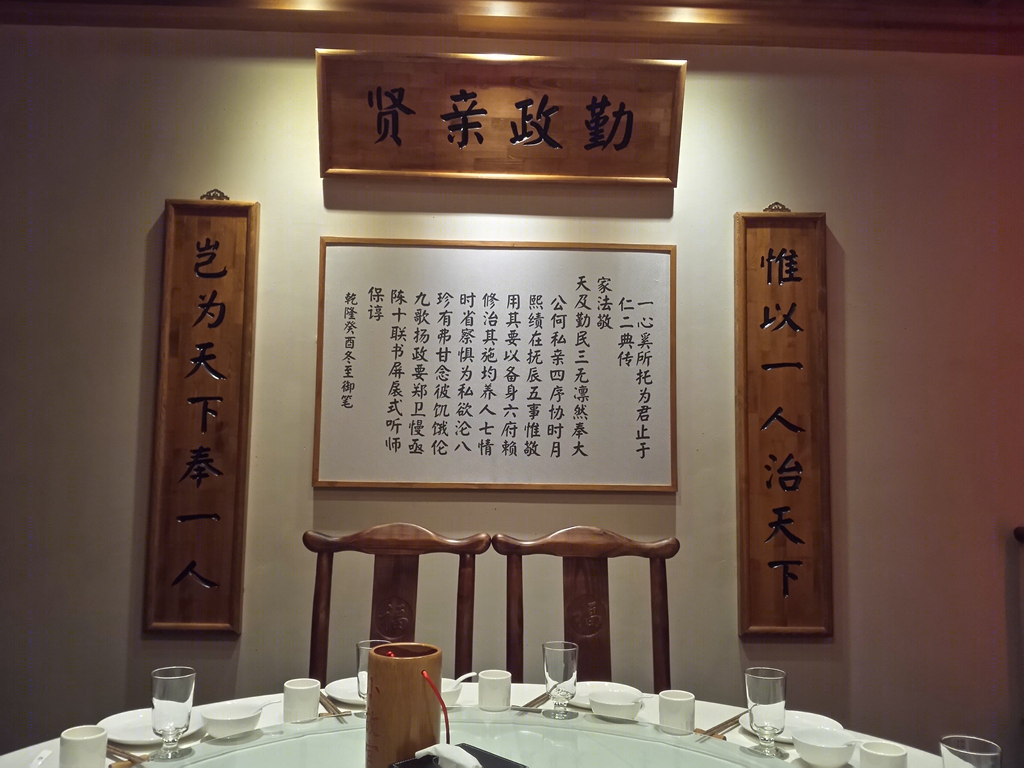 勤政亲贤
惟以一人治天下
岂为天下奉一人
一心奚所托为君止于
仁二典传
家法敬
天及勤民三无凛然奉大
公何私亲四序协时月
熙绩在抚辰五事惟敬
用其要以备身六府赖
修治其施均养人七情
时省察惧为私欲沦八
珍有弗甘念彼饥饿伦
九歌扬政要郑卫慢亟
陈十联书屏扆式听师
保谆
乾隆癸酉冬至御笔
福
福